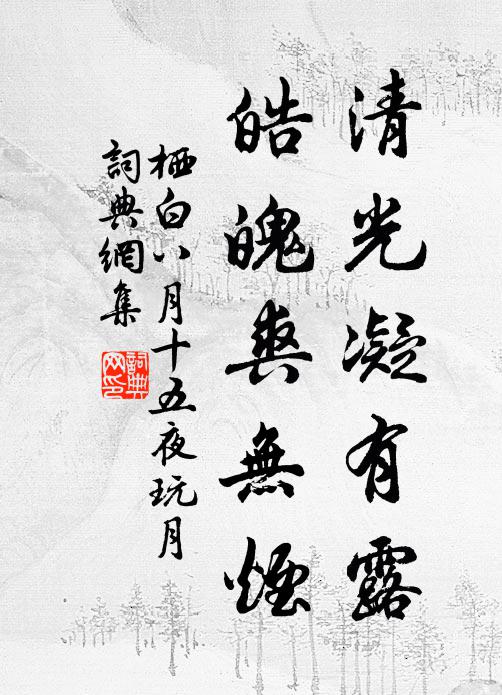 清光凝有露
皓魄爽無煙
栖白八月十五夜玩月
詞典網集
詞典
网印